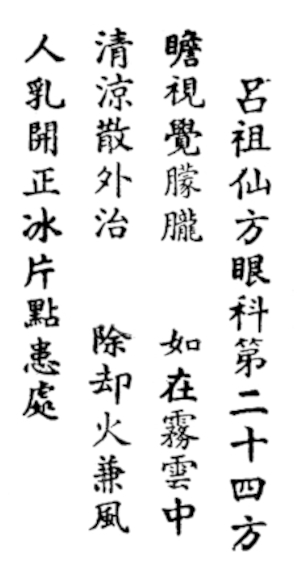 呂祖仙方眼科第二十四方
瞻視覺朦朧　如在霧雲中
清涼散外治　除却火兼風
人乳開正冰片點患處